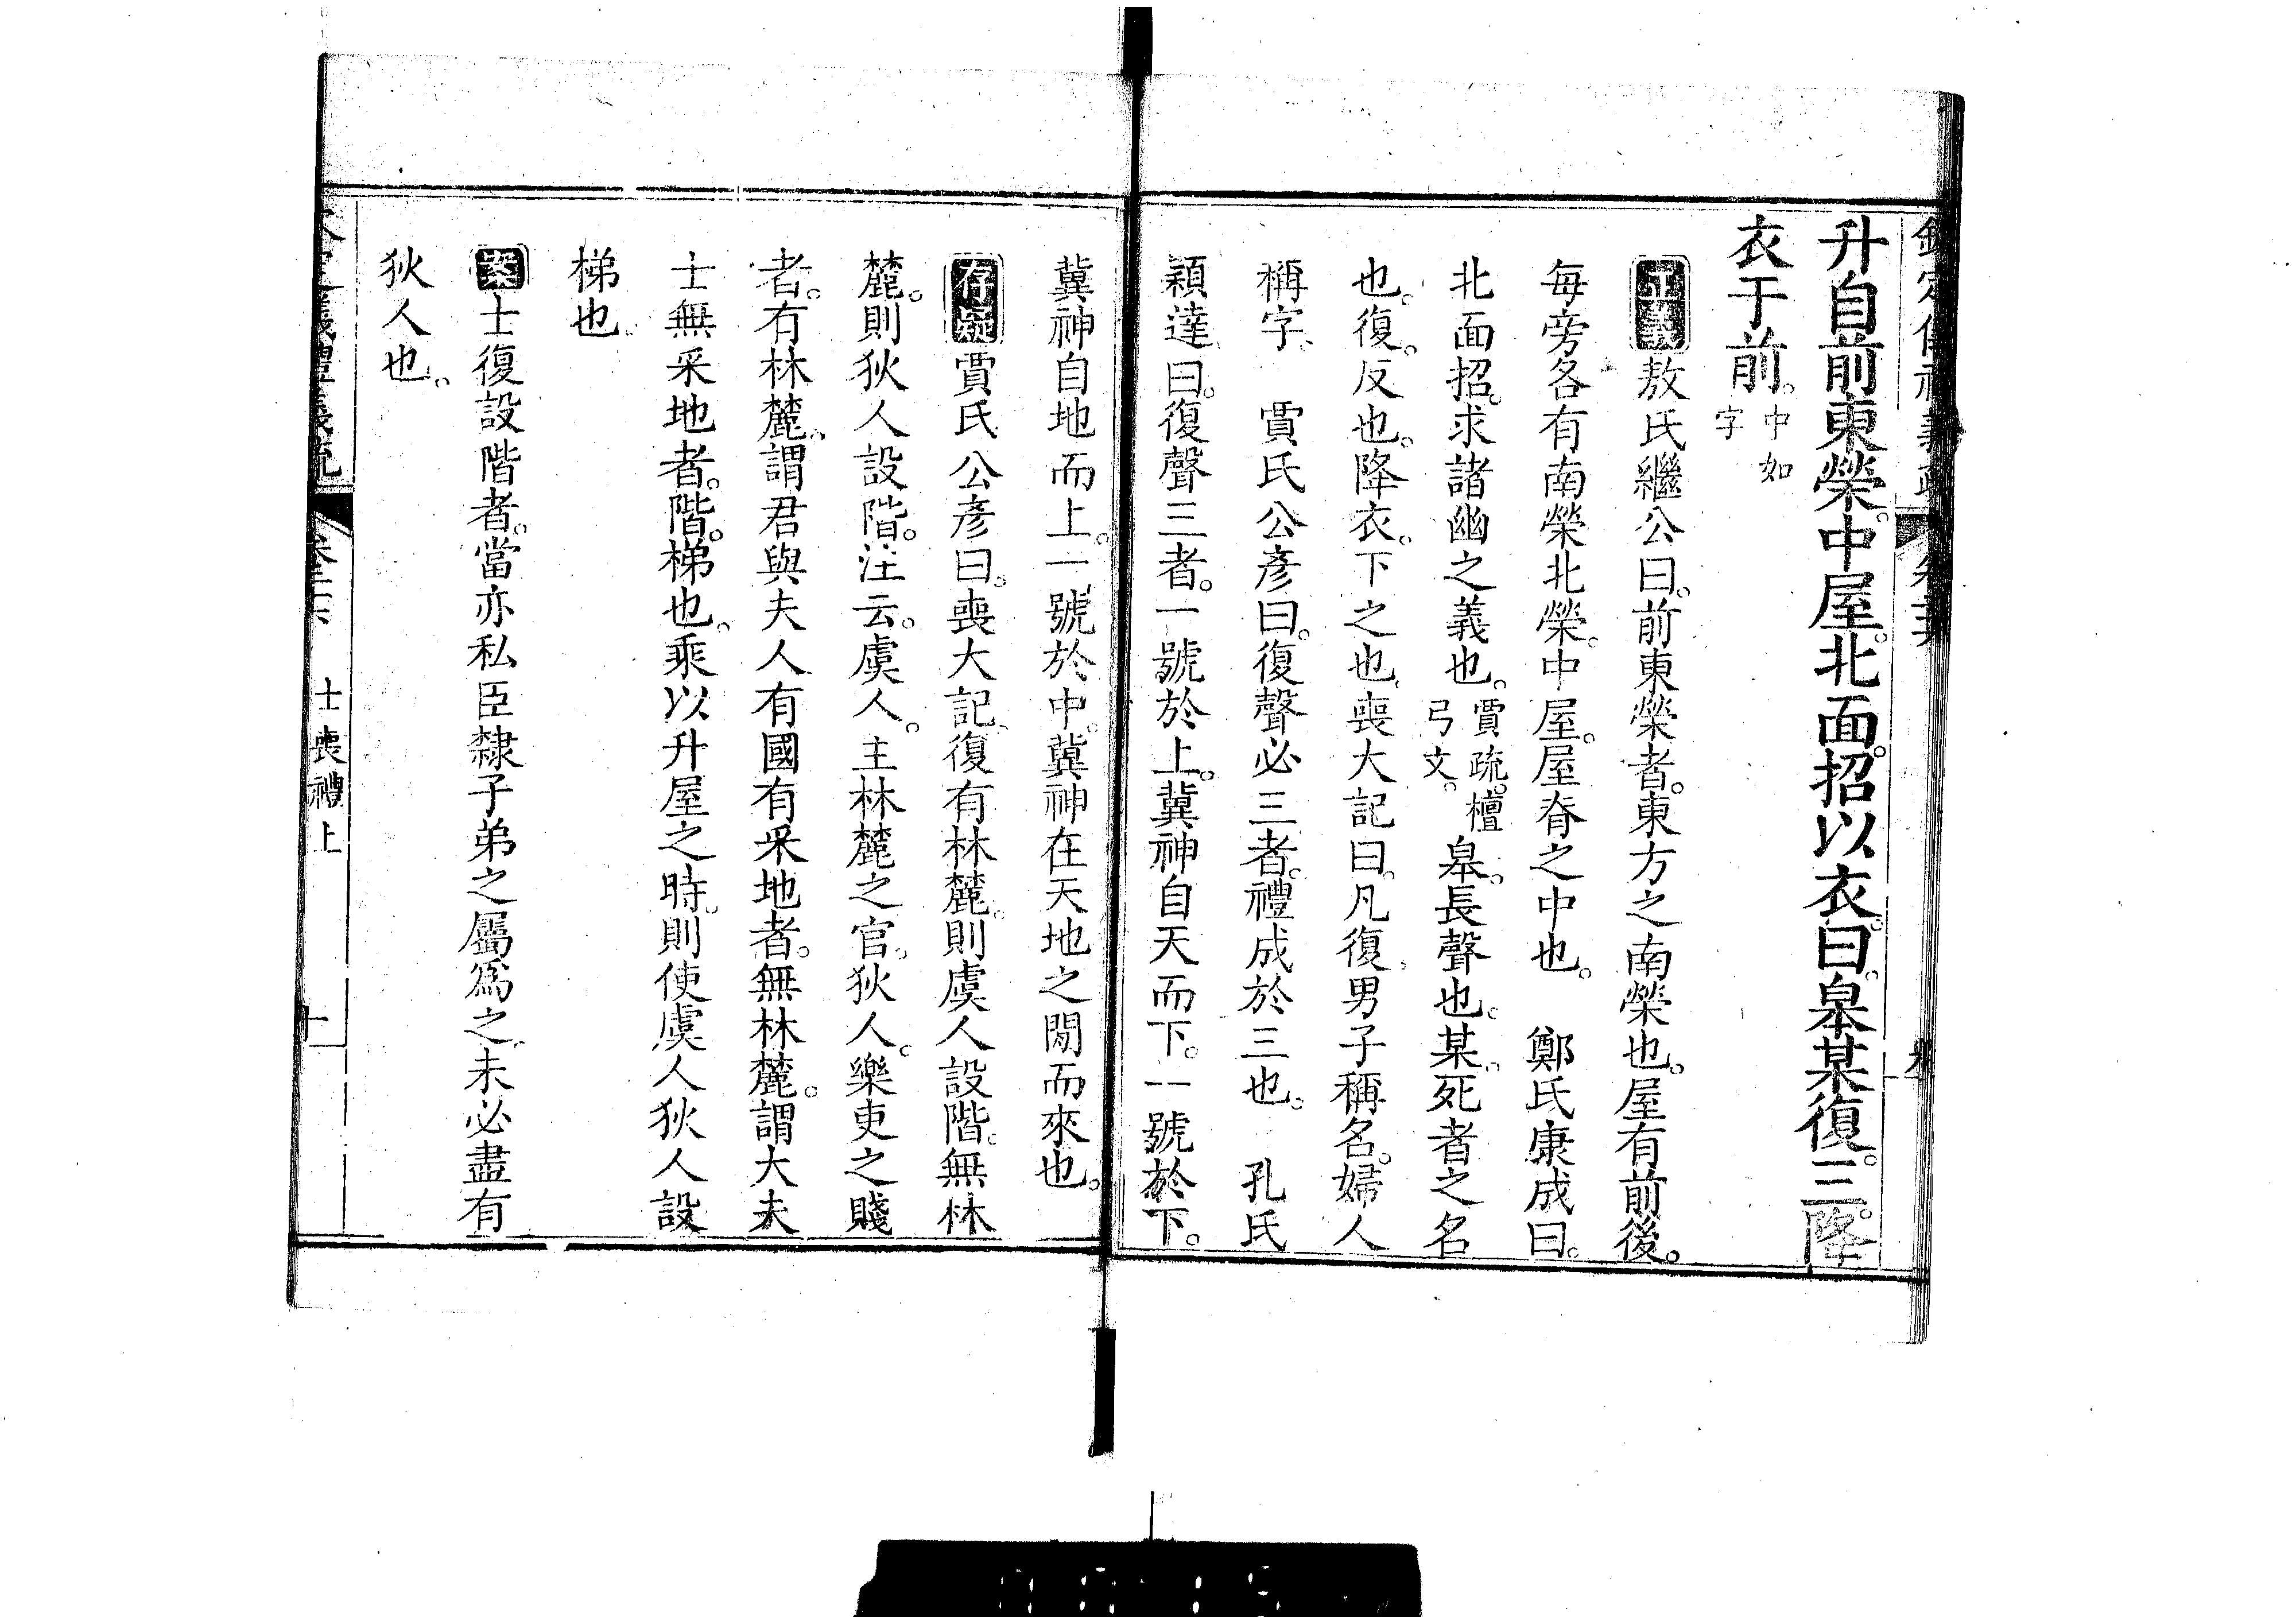 升自前東榮。中屋。北面。招以衣。曰。皋某復。三。降
衣于前。中如字
正義敖氏繼公曰。前東榮者。東方之南榮也。屋有前後。
每旁各有南榮北榮。中屋。屋脊之中也。 鄭氏康成曰。
北面招。求諸幽之義也。賈疏。檀弓文。皋。長聲也。某。死者之名
也。復。反也。降衣。下之也。喪大記曰。凡復。男子稱名。婦人
稱字。 賈氏公彥曰。復聲必三者。禮成於三也。 孔氏
穎達曰。復聲三者。一號於上。冀神自天而下。一號於下。
冀神自地而上。一號於中。冀神在天地之閒而來也。
存疑賈氏公彥曰。喪大記。復有林麓。則虞人設階。無林
麓。則狄人設階。注云。虞人。主林麓之官。狄人。樂吏之賤
者。有林麓。謂君與夫人有國有采地者。無林麓。謂大夫
士無采地者。階。梯也。乘以升屋之時。則使虞人狄人設
梯也。
案士復設階者。當亦私臣隸子弟之屬爲之。未必盡有
狄人也。
士喪禮上